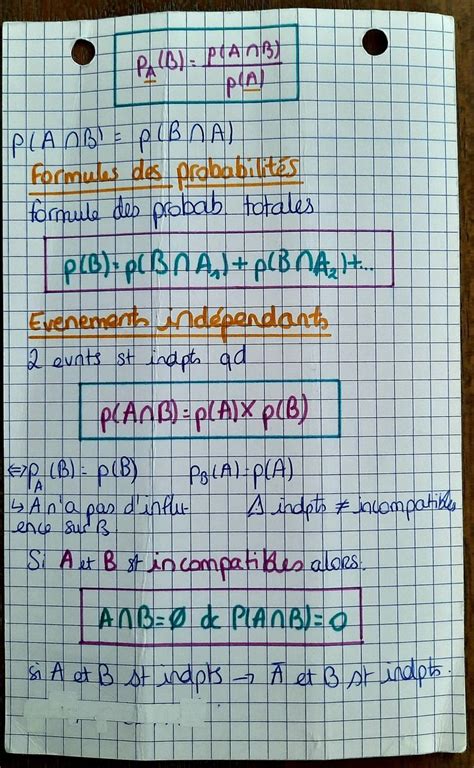 P_A(B) = p(A∩B) / p(A)
p(A∩B) = p(B∩A)
Formules des probabilités
formule des probab. totales
p(B) = p(B∩A₁) + p(B∩A₂) + ...
Evenements indépendants
2 evnts st indpts qd
p(A∩B) = p(A) × p(B)
⇔ p_A(B) = p(B)   p_B(A) = p(A)
↳ A n'a pas d'influ-   Δ indpts ≠ incompatibles
ence sur B.
Si A et B st incompatibles alors.
A∩B = ∅ dc P(A∩B) = 0
si A et B st indpts → A̅ et B st indpts.